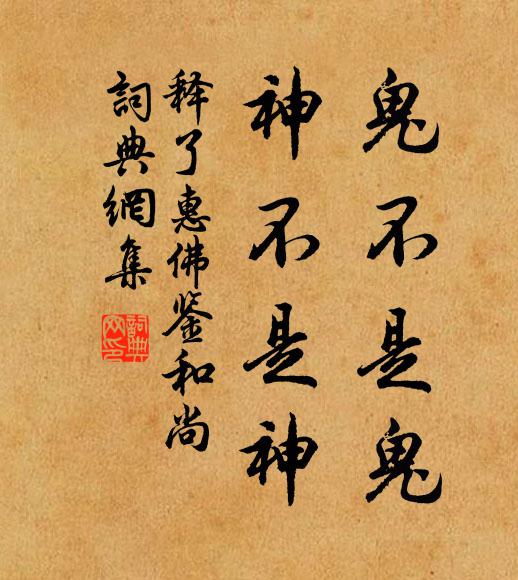 鬼不是鬼
神不是神
释了惠佛鉴和尚
詞典網集
詞典
网印